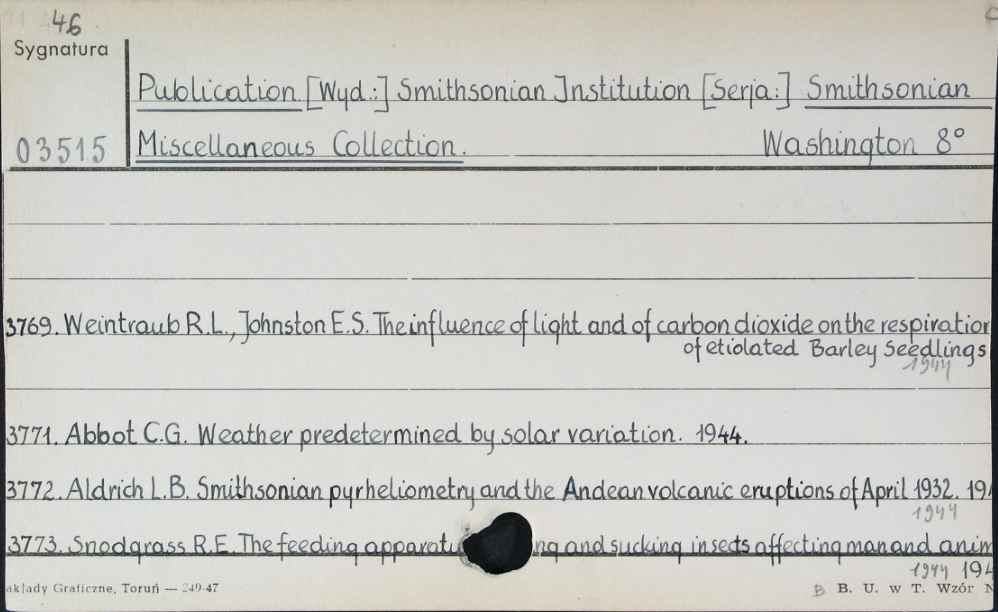 46
Sygnatura
Publication [Wyd.:] Smithsonian Institution [Serja:] Smithsonian
03515 Miscellaneous Collection. Washington 8°
3769. Weintraub R.L., Johnston E.S. The influence of light and of carbon dioxide on the respiration
of etiolated Barley Seedlings
1944
3771. Abbot C.G. Weather predetermined by solar variation. 1944.
3772. Aldrich L.B. Smithsonian pyrheliometry and the Andean volcanic eruptions of April 1932. 19
1944
3773. Snodgrass R.E. The feeding apparatu ng and sucking insects affecting man and anim
1944 194
akłady Graficzne, Toruń — 249-47 B B. U. w T. Wzór N